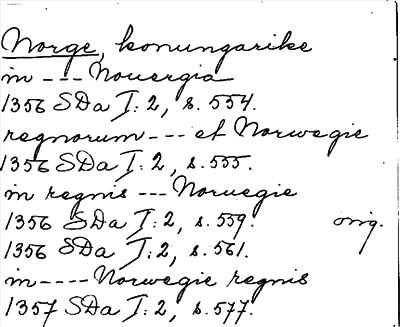 Norge, konungarike
in --- Nouergia
1356 SDa I: 2, s. 554.
regnorum --- et Norwegie
1356 SDa I: 2, s. 555.
in regnis --- Noruegie
1356 SDa I: 2, s. 559. orig.
1356 SDa I: 2, s. 561.
in ---- Norwegie regnis
1357 SDa I: 2, s. 577.